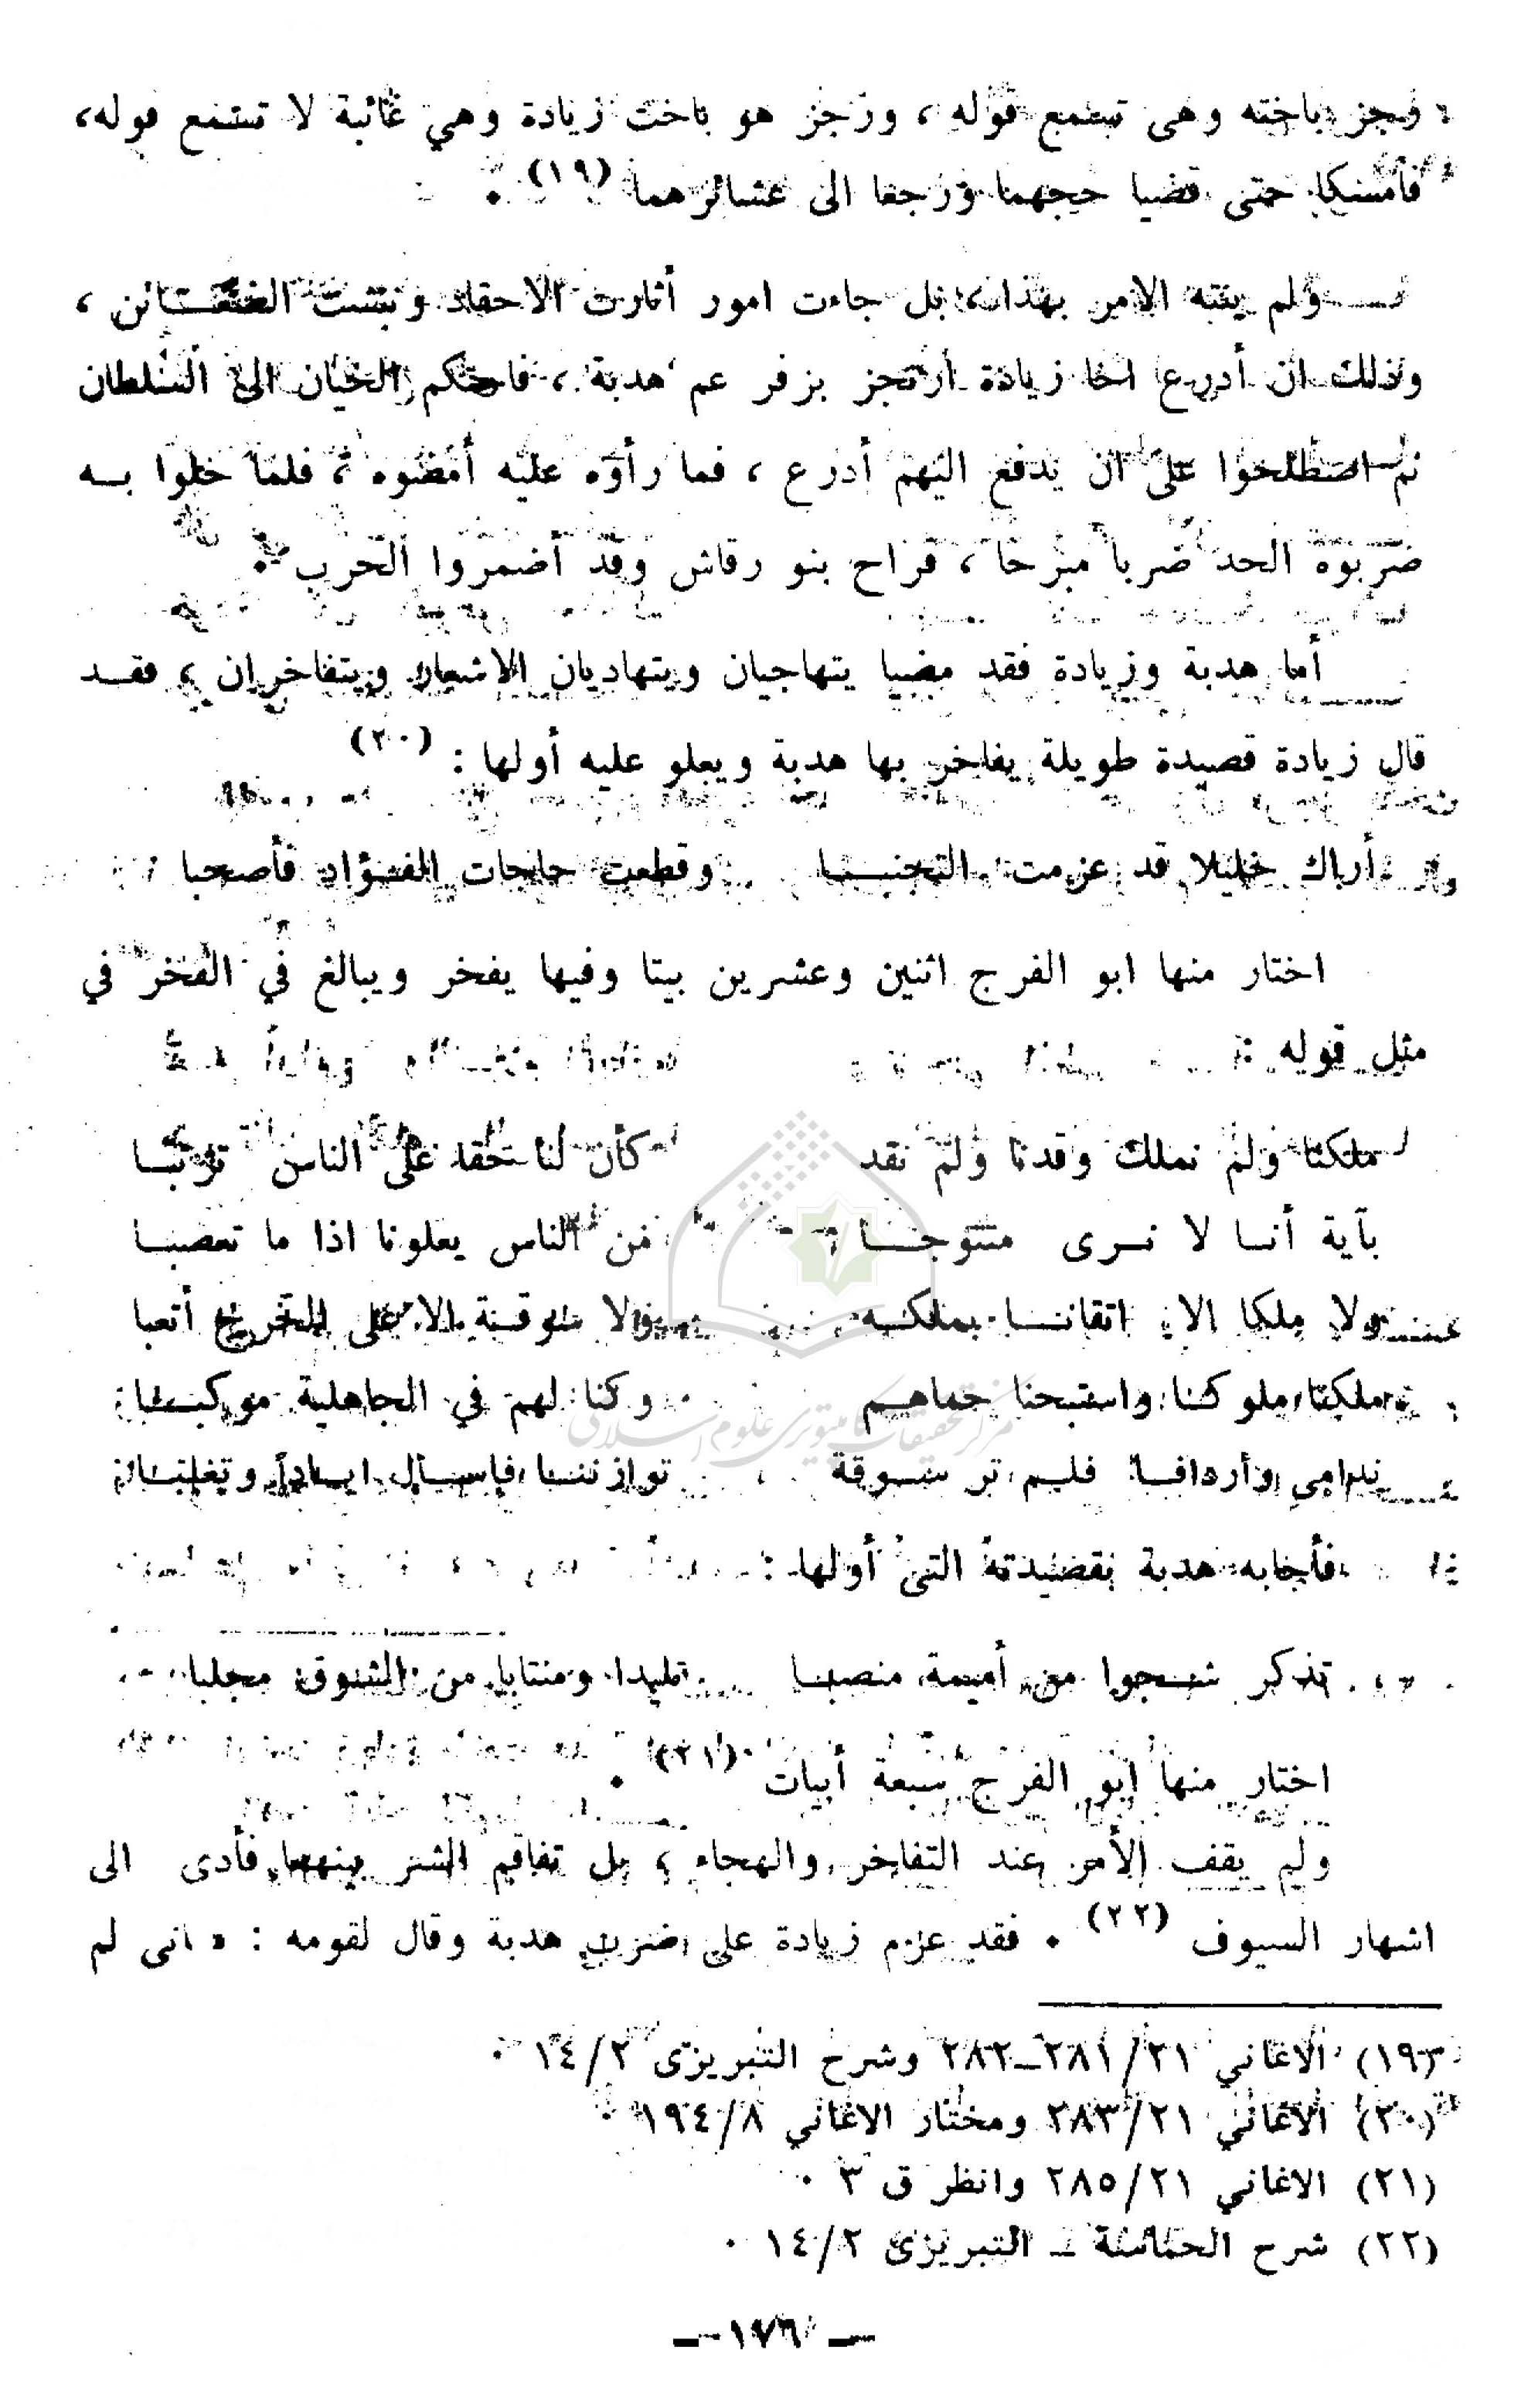 رجز باخته وهى تسمع قوله ، ورجز هو باخت زيادة وهي غائبة لا تسمع قوله،
فأمسكا حتى قضيا حجهما ورجعا الى عشائرهما (١٩) .
ولم ينته الامر بهذا ، بل جاءت امور أثارت الاحقاد ونبشت الضغـــائن ،
وذلك ان أدرع اخا زيادة ارتجز بزفر عم هدبة ، فاحتكم الحيان الى السلطان
ثم اصطلحوا على ان يدفع اليهم أدرع ، فما رأوه عليه أمضوه ، فلما خلوا بــه
ضربوه الحد ضربا مبرحا ، فراح بنو رقاش وقد أضمروا الحرب .
أما هدبة وزيادة فقد مضيا يتهاجيان ويتهاديان الاشعار ويتفاخران ، فقــد
قال زيادة قصيدة طويلة يفاخر بها هدبة ويعلو عليه أولها : (٢٠)
أراك خليلا قد عزمت التجنبــا وقطعت حاجات الفــؤاد فأصحبا
اختار منها ابو الفرج اثنين وعشرين بيتا وفيها يفخر ويبالغ في الفخر في
مثل قوله :
ملكنا ولم نملك وقدنا ولم نقد كأن لنا حقا على الناس ترتبــا
بآية أنــا لا نــرى متتوجــا من الناس يعلونا اذا ما تعصبــا
ولا ملكا الا اتقانــا بملكــه ولا سوقــة الا على الخرج أتعبا
ملكنا ملوكــا واستبحنا حماهــم وكنا لهم في الجاهلية موكبــا
ندامى وأردافــا فلــم تر ســوقة توازننــا فاســأل ايــادا وتغلبــا
فأجابه هدبة بقصيدته التى أولها :
تذكر شــجوا من أميمة منصبــا تليدا ومنتابا من الشوق مجلبا
اختار منها ابو الفرج سبعة أبيات (٢١) .
ولم يقف الأمر عند التفاخر والهجاء ، بل تفاقم الشر بينهما فأدى الى
اشهار السيوف (٢٢) . فقد عزم زيادة على ضرب هدبة وقال لقومه : « انى لم
(١٩) الاغاني ٢١/٢٨١ــ٢٨٢ وشرح التبريزى ١٤/٢ .
(٢٠) الاغاني ٢١/٢٨٣ ومختار الاغاني ١٩٤/٨ .
(٢١) الاغاني ٢١/٢٨٥ وانظر ق ٣ .
(٢٢) شرح الحماسة ــ التبريزى ١٤/٢ .
ــ ١٧٦ ــ
مركز تحقيقات كامپيوترى علوم اسلامى